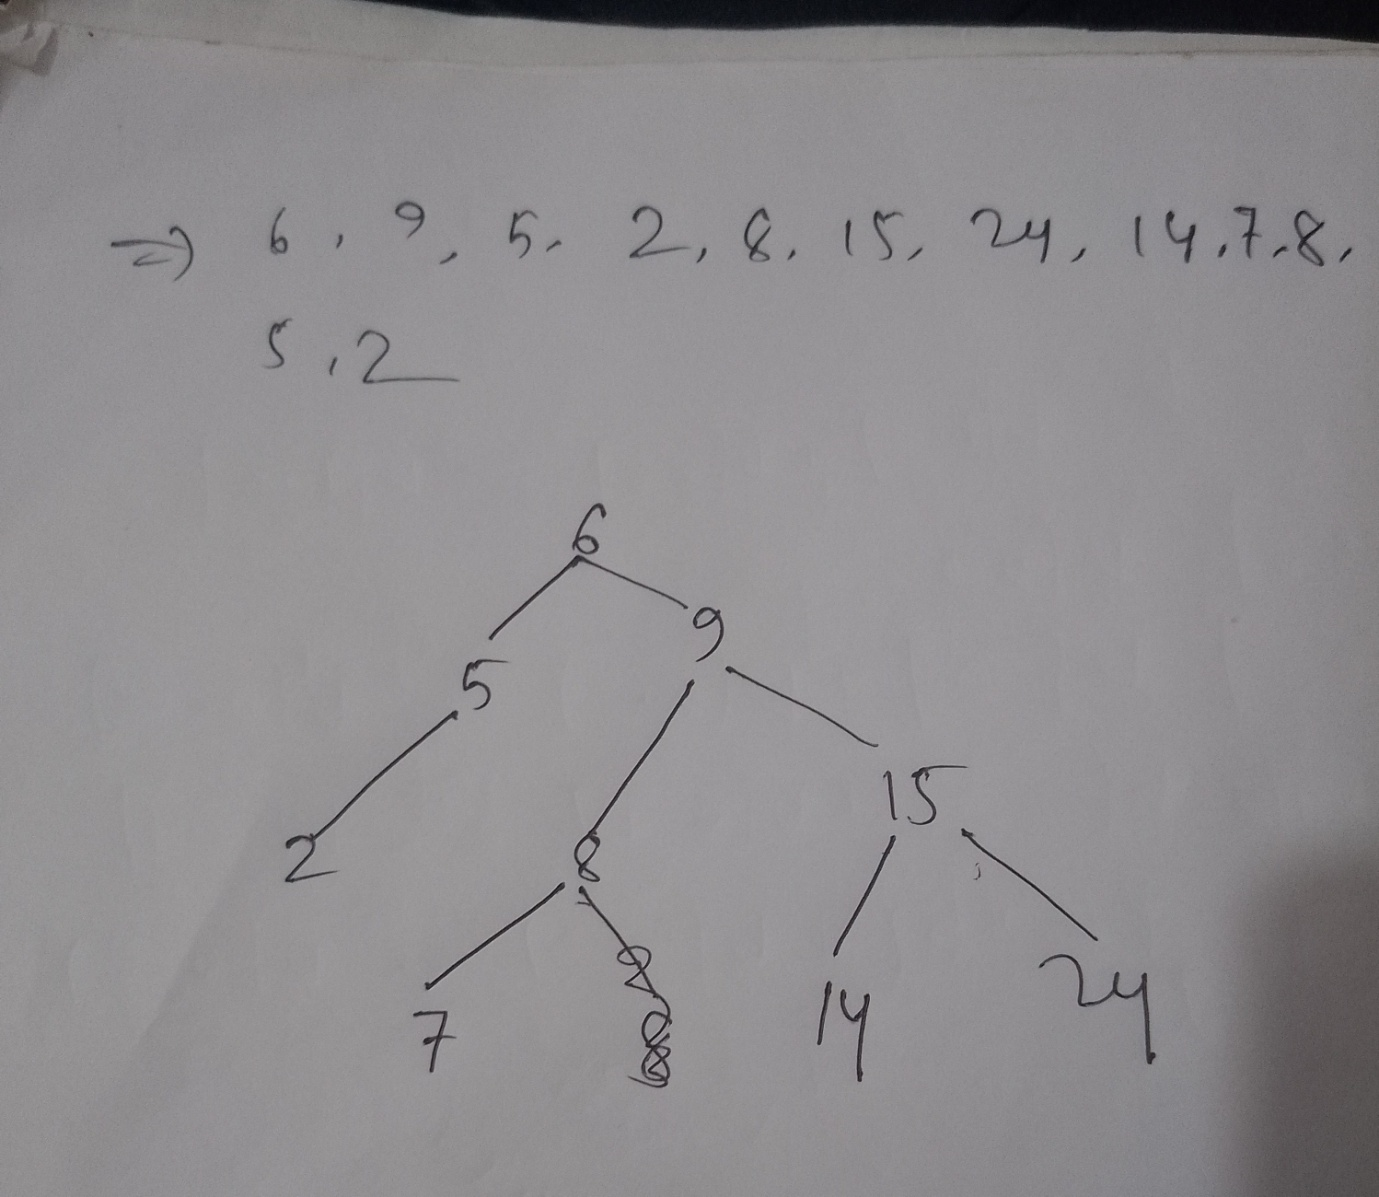 => 6, 9, 5, 2, 8, 15, 24, 14, 7, 8,
5, 2
6
5 9
2 8 15
7 14 24